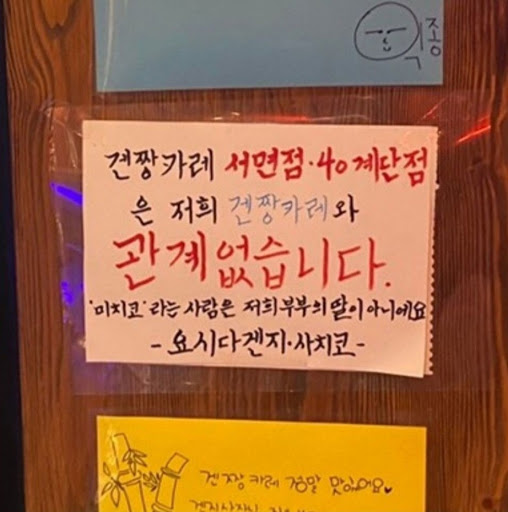 직종
겐짱카레 서면점·40계단점
은 저희 겐짱카레와
관계없습니다.
'미치코'라는 사람은 저희부부의 딸이 아니에요
- 요시다겐지·사치코 -
겐짱 카레 정말 맛있어요♥